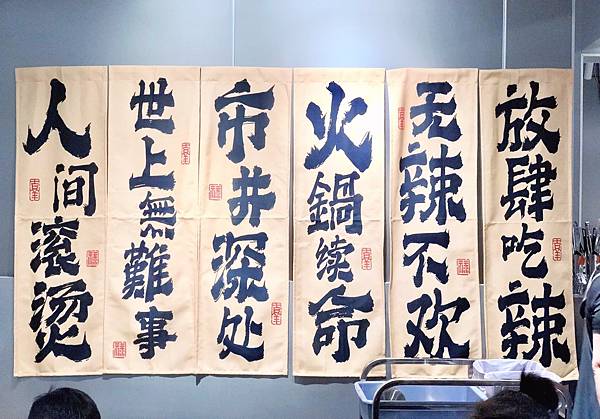 放肆吃辣
无辣不欢
火鍋续命
市井深处
世上無難事
人间滚烫